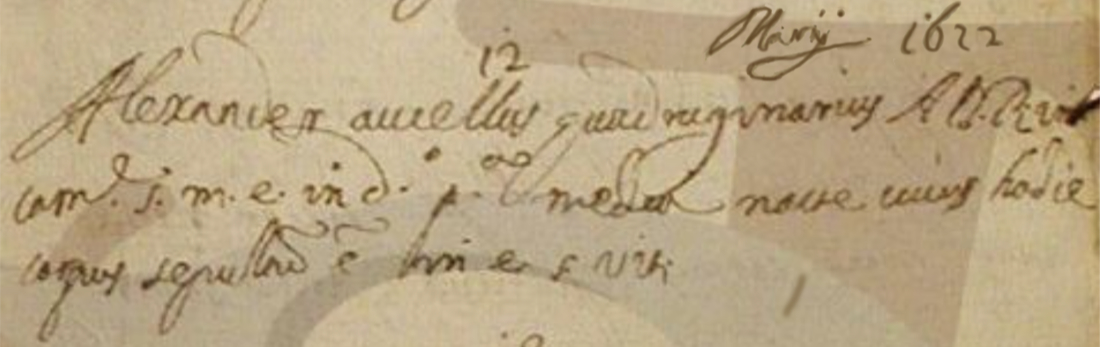 Martij 1622
12
Alexander aucellus quadragenarius A D. R
com. s. m. e. in d. p. media nocte cuius hodie
corpus sepultũ ẽ in e. s viti